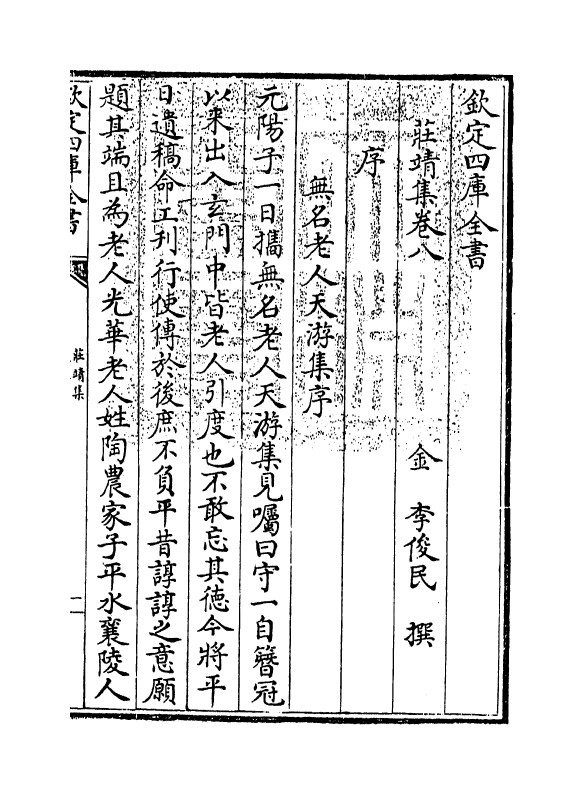 欽定四庫全書
莊靖集卷八
金　李俊民　撰
序
無名老人天游集序
元陽子一日攜無名老人天游集見囑曰守一自簪冠
以來出入玄門中皆老人引度也不敢忘其徳今將平
日遺稿命工刋行使傳於後庶不負平昔諄諄之意願
題其端且為老人光華老人姓陶農家子平水襄陵人
欽定四庫全書
莊靖集